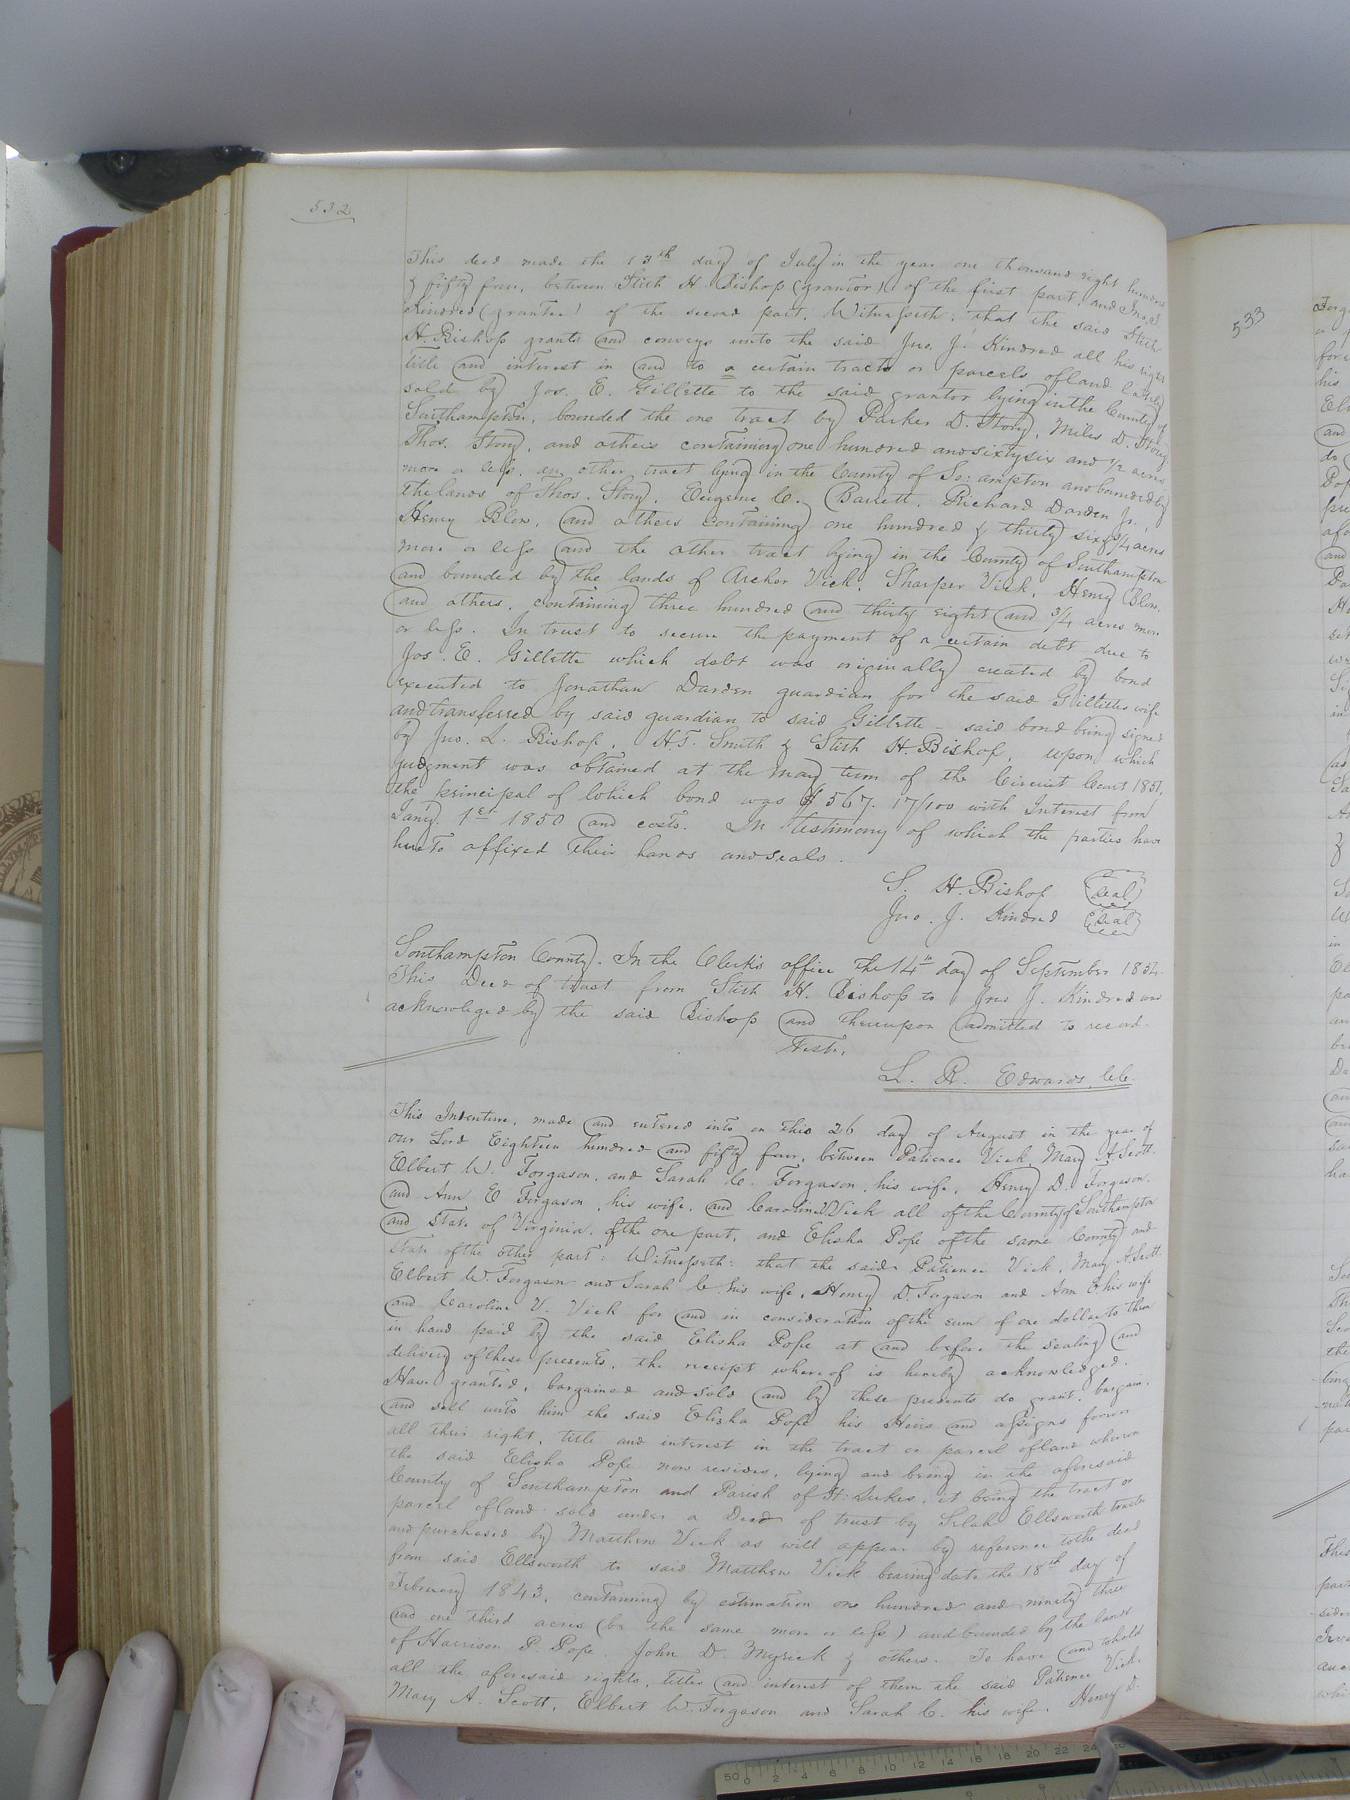 532
This deed made the 13th day of July in the year one thousand eight hundred
& fifty four, between Stith H. Bishop (grantor) of the first part, and Jno. J.
Kindred (grantee) of the second part, Witnesseth: that the said Stith
H. Bishop grants and conveys unto the said Jno. J. Kindred all his right
title and interest in and to a certain tracts or parcels of land lately
sold by Jos. E. Gillette to the said grantor lying in the County of
Southampton, bounded the one tract by Parker D. Story, Miles D. Story,
Thos. Story, and others containing one hundred and sixty six and 1/2 acres
more or less, an other tract lying in the County of So:ampton and bounded by
the lands of Thos. Story, Eugene C. Barrett, Richard Darden Jr.,
Henry Blow, and others containing one hundred & thirty six & 3/4 acres
more or less and the other tract lying in the County of Southampton
and bounded by the lands of Archer Vick, Sharper Vick, Henry Blow,
and others, containing three hundred and thirty eight and 3/4 acres more
or less. In trust to secure the payment of a certain debt due to
Jos. E. Gillette which debt was originally created by bond
executed to Jonathan Darden guardian for the said Gillettes wife
and transferred by said guardian to said Gillette - said bond being signed
by Jno. L. Bishop, H.T. Smith & Stith H. Bishop, upon which
judgment was obtained at the May term of the Circuit Court 1851,
the principal of which bond was $567. 17/100 with Interest from
Jany. 1st 1850 and costs. In testimony of which the parties have
hereto affixed their hands and seals.
S. H. Bishop (seal)
Jno. J. Kindred (seal)
Southampton County. In the Clerk's office the 14th day of September 1854.
This Deed of trust from Stith H. Bishop to Jno J. Kindred was
acknowleged by the said Bishop and thereupon admitted to record.
Teste,
L. R. Edwards, C.C.
This Indenture, made and entered into on this 26 day of August in the year of
our Lord Eighteen hundred and fifty four, between Patience Vick, Mary A. Scott.
Elbert W. Forgason, and Sarah C. Forgason, his wife, Henry D. Forgason.
and Ann E Forgason, his wife, and Caroline V. Vick all of the County of Southampton
and State of Virginia, of the one part, and Elisha Pope of the same County and
State of the other part: Witnesseth: that the said Patience Vick, Mary A. Scott
Elbert W. Forgason and Sarah C. his wife, Henry D. Forgason and Ann E his wife
and Caroline V. Vick for and in consideration of the sum of one dollar to them
in hand paid by the said Elisha Pope at and before the sealing and
delivery of these presents, the receipt whereof is hereby acknowledged.
Have granted, bargained and sold and by these presents do grant, bargain,
and sell unto him the said Elisha Pope his Heirs and assigns forever
all their right, title and interest in the tract or parcel of land whereon
the said Elisha Pope now resides, lying and being in the aforesaid
County of Southampton and Parish of St: Lukes, it being the tract or
parcel of land sold under a Deed of trust by Selah Ellsworth trustee
and purchased by Matthew Vick as will appear by reference to the deed
from said Ellsworth to said Matthew Vick bearing date the 18th day of
February 1843, containing by estimation one hundred and ninety three
and one third acres (be the same more or less) and bounded by the lands
of Harrison P. Pope, John D. Myrick & others. To have and to hold
all the aforesaid rights, titles and interest of them the said Patience Vick.
Mary A. Scott, Elbert W. Forgason and Sarah C. his wife, Henry D.
533